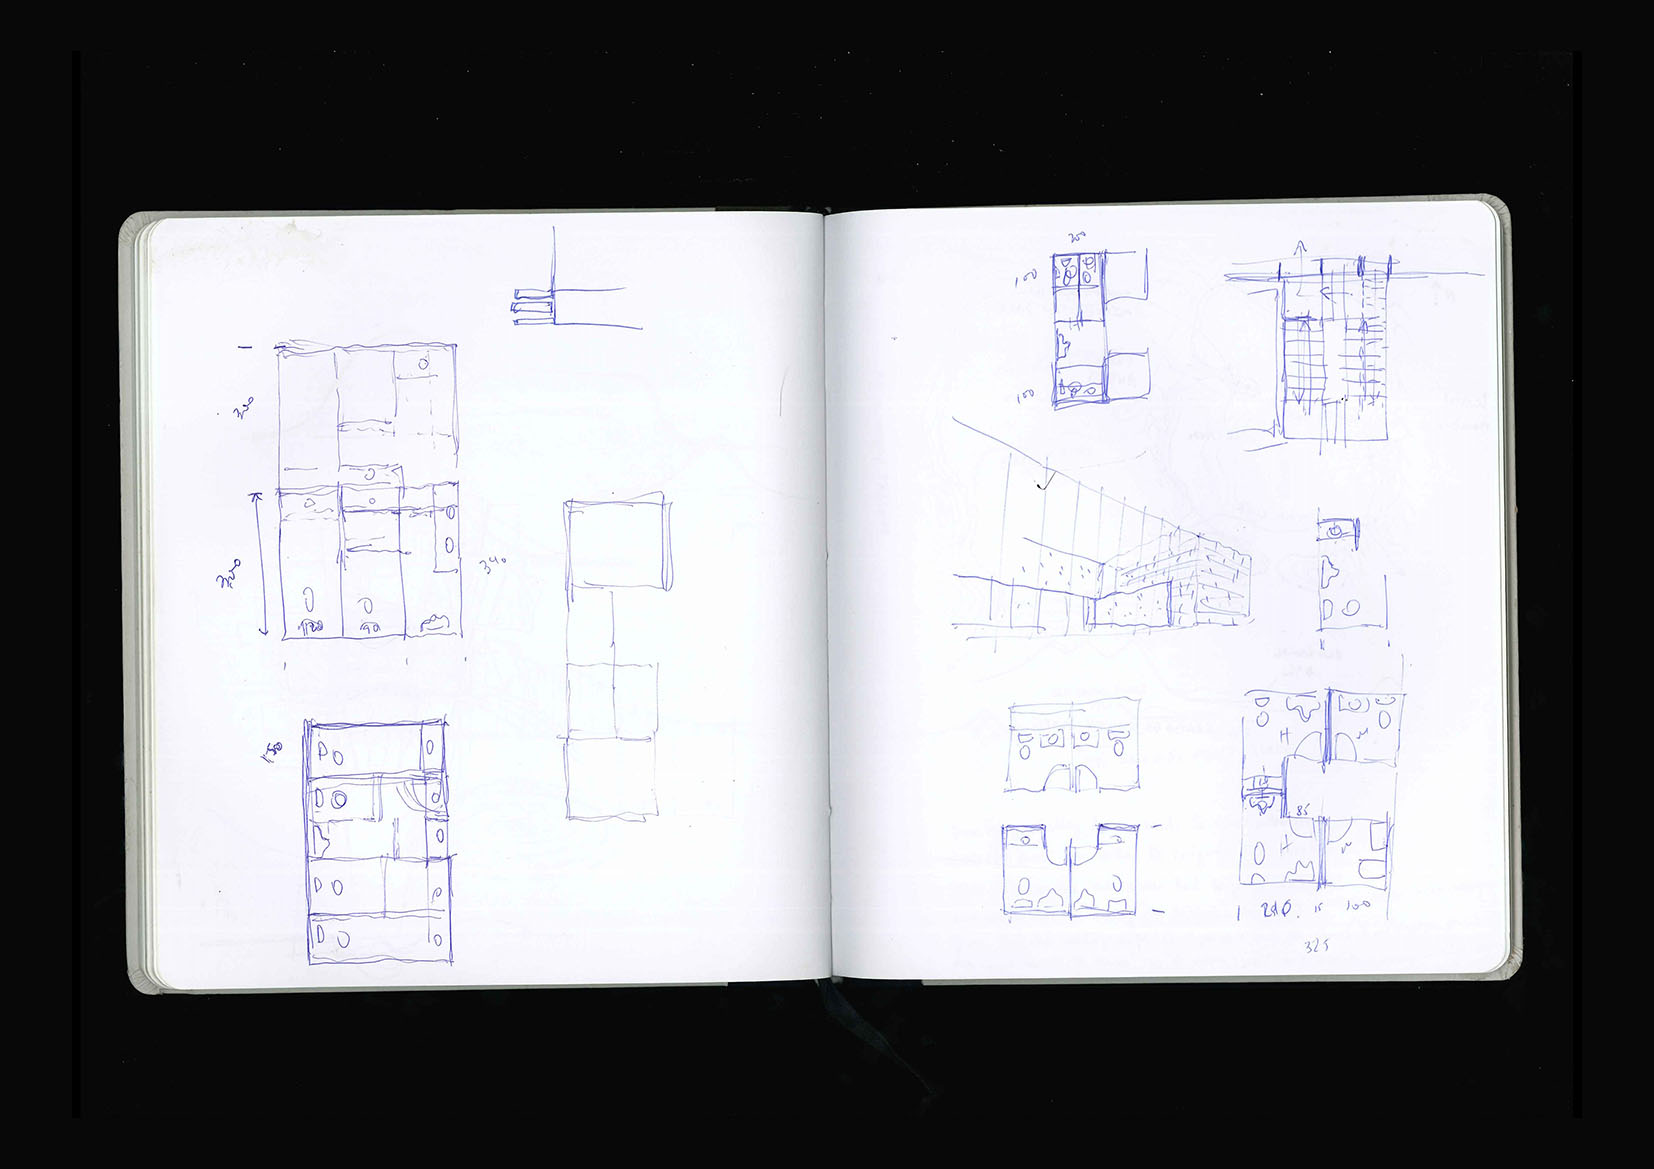 320
320
340
150
200
100
100
H
M
85
H
M
210. 15 100
325